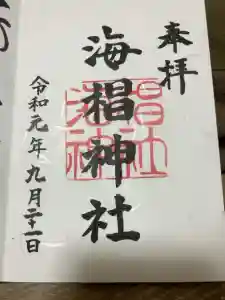 奉拝
海椙神社
令和元年九月二十一日